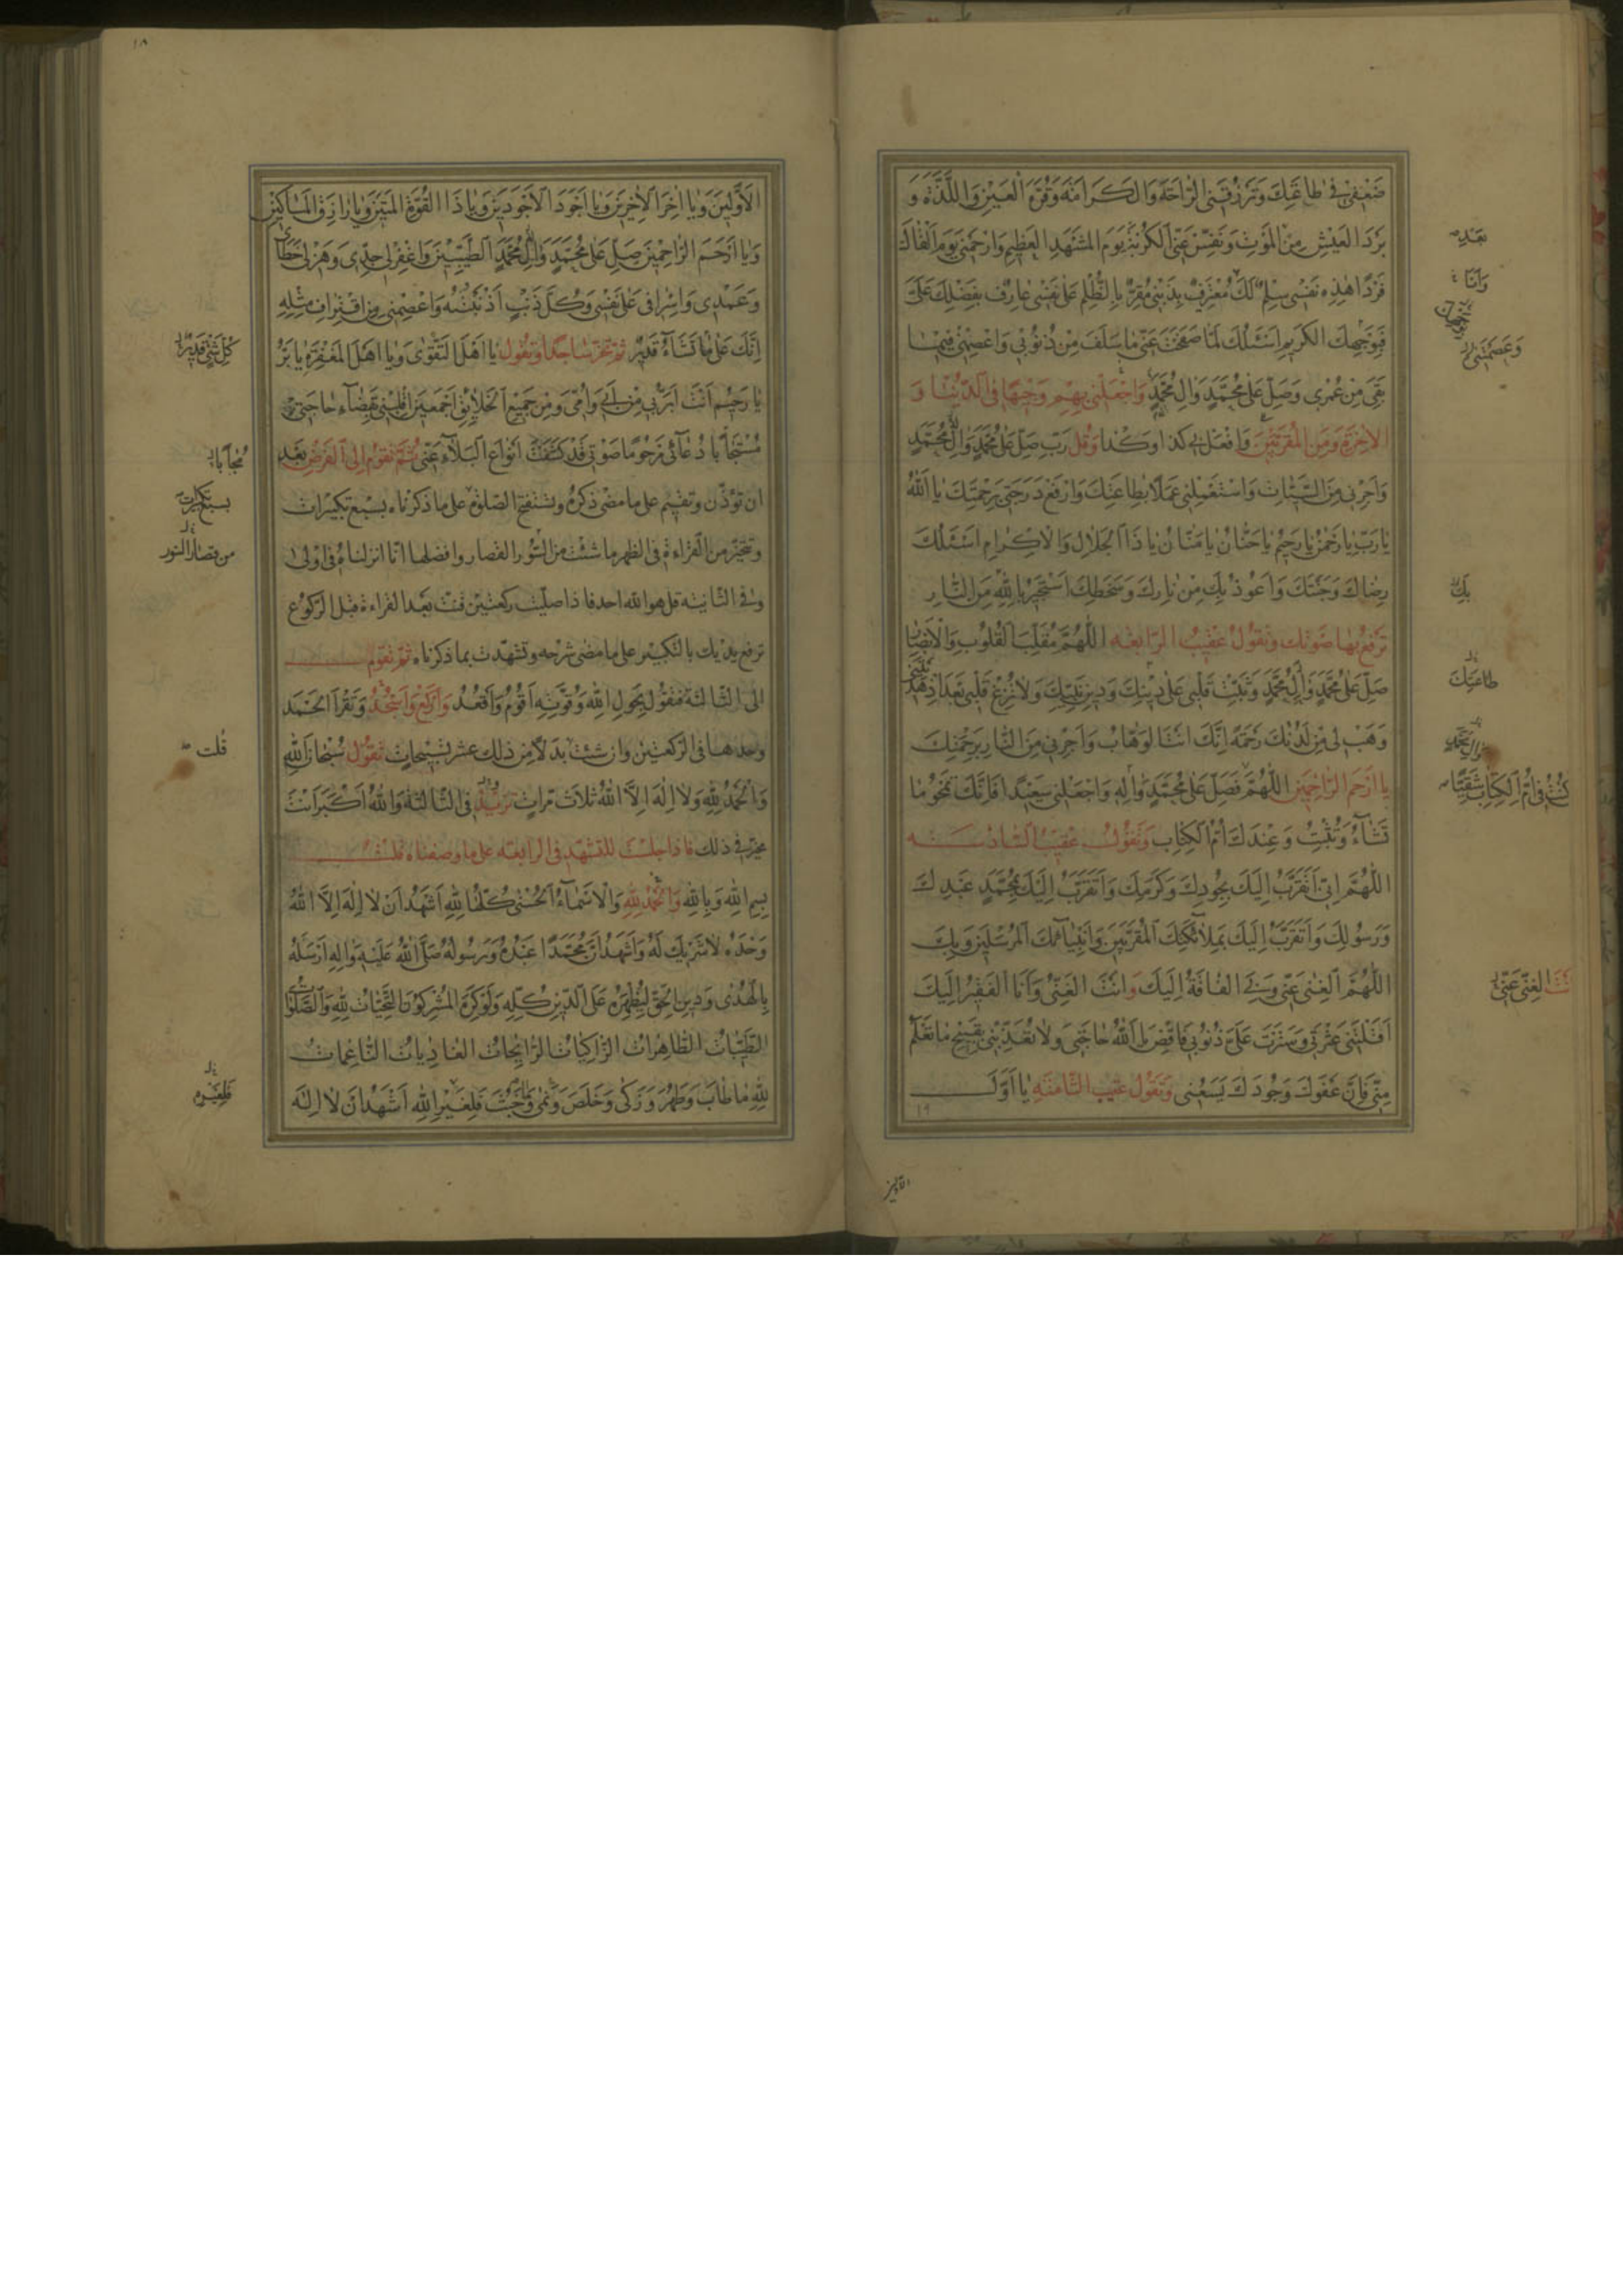 ضَعْفى فى طاعَتِكَ وَتَرْزُقَنِى الرّاحَةَ وَالْكَرامَةَ وَقُرَّةَ الْعَيْنِ وَاللَّذَّةَ وَ
بَرْدَ الْعَيْشِ مِنْ بَعْدِ الْمَوْتِ وَنَفِّسْ عَنِّى الْكُرْبَةَ يَوْمَ الْمَشْهَدِ الْعَظيمِ وَارْحَمْنى يَوْمَ اَلْقاكَ
فَرْدًا هٰذِهِ نَفْسى سِلْمٌ لَكَ مُعْتَرِفٌ بِذَنْبى مُقِرٌّ بِالظُّلْمِ عَلى نَفْسى عارِفٌ بِفَضْلِكَ عَلَىَّ
فَبِوَجْهِكَ الْكَريمِ اَسْئَلُكَ لَمّا صَفَحْتَ عَنّى ما سَلَفَ مِنْ ذُنُوبى وَاعْصِمْنى فيما
بَقِىَ مِنْ عُمْرى وَصَلِّ عَلى مُحَمَّدٍ وَالِ مُحَمَّدٍ وَاجْعَلْنى بِهِمْ وَجيهًا فِى الدُّنْيا وَ
الْاخِرَةِ وَمِنَ الْمُقَرَّبينَ وَافْعَلْ بى كذا وكذا وَقُل رَبِّ صَلِّ عَلى مُحَمَّدٍ وَالِ مُحَمَّدٍ
وَاَجِرْنى مِنَ السَّيِّئاتِ وَاسْتَعْمِلْنى عَمَلًا بِطاعَتِكَ وَارْفَعْ دَرَجَتى بِرَحْمَتِكَ يا اَللّٰهُ
يا رَبِّ يا رَحْمٰنُ يا رَحيمُ يا حَنّانُ يا مَنّانُ يا ذَا الْجَلالِ وَالْاِكْرامِ اَسْئَلُكَ
رِضاكَ وَجَنَّتَكَ وَاَعُوذُ بِكَ مِنْ نارِكَ وَسَخَطِكَ اَسْتَجيرُ بِاللّٰهِ مِنَ النّارِ
تَرْفَعُ بها صَوْتَكَ وتقولُ عَقيبَ الرّابعةِ اَللّٰهُمَّ مُقَلِّبَ الْقُلُوبِ وَالْاَبْصارِ
صَلِّ عَلى مُحَمَّدٍ وَالِ مُحَمَّدٍ وَثَبِّتْ قَلْبى عَلى دينِكَ وَدينِ نَبِيِّكَ وَلا تُزِغْ قَلْبى بَعْدَ اِذْ هَدَيْتَنى
وَهَبْ لى مِنْ لَدُنْكَ رَحْمَةً اِنَّكَ اَنْتَ الْوَهّابُ وَاَجِرْنى مِنَ النّارِ بِرَحْمَتِكَ
يا اَرْحَمَ الرّاحِمينَ اَللّٰهُمَّ فَصَلِّ عَلى مُحَمَّدٍ وَالِهِ وَاجْعَلْنى سَعيدًا فَاِنَّكَ تَمْحُو ما
تَشاءُ وَتُثْبِتُ وَعِنْدَكَ اُمُّ الْكِتابِ وَتَقُولُ عَقيبَ السّادسةِ
اَللّٰهُمَّ اِنّى اَتَقَرَّبُ اِلَيْكَ بِجُودِكَ وَكَرَمِكَ وَاَتَقَرَّبُ اِلَيْكَ بِمُحَمَّدٍ عَبْدِكَ
وَرَسُولِكَ وَاَتَقَرَّبُ اِلَيْكَ بِمَلائِكَتِكَ الْمُقَرَّبينَ وَاَنْبِيائِكَ الْمُرْسَلينَ وَبِكَ
اَللّٰهُمَّ الْغِنى عَنّى وَبِى الْفاقَةُ اِلَيْكَ وَاَنْتَ الْغَنِىُّ وَاَنَا الْفَقيرُ اِلَيْكَ
اَقَلْتَنى عَثْرَتى وَسَتَرْتَ عَلَىَّ ذُنُوبى فَاقْضِ يا اَللّٰهُ حاجَتى وَلا تُعَذِّبْنى بِقَبيحِ ما تَعْلَمُ
مِنّى فَاِنَّ عَفْوَكَ وَجُودَكَ يَسَعُنى وَتَقُولُ عقيب الثّامنةِ يا اَوَّلَ
١٩
بَعْدِ
وَاَنَا
وَعَصَمْتَنى
بِكَ
طاعَتِكَ
وَالِ مُحَمَّدٍ
كُنْتُ فى اُمِّ الْكِتابِ شَقِيًّا
اَنْتَ الْغَنِىُّ عَنّى
الاولين
١٨
الْاَوَّلينَ وَيا اخِرَ الْاخِرينَ وَيا اَجْوَدَ الْاَجْوَدينَ وَيا ذَا الْقُوَّةِ الْمَتينَ وَيا رازِقَ الْمَساكينِ
وَيا اَرْحَمَ الرّاحِمينَ صَلِّ عَلى مُحَمَّدٍ وَالِ مُحَمَّدٍ الطَّيِّبينَ وَاغْفِرْ لى جِدّى وَهَزْلى خَطَاى
وَعَمْدى وَاِسْرافى عَلى نَفْسى وَكُلَّ ذَنْبٍ اَذْنَبْتُهُ وَاعْصِمْنى مِنِ اقْتِرافِ مِثْلِهِ
اِنَّكَ عَلى ما تَشاءُ قَديرٌ ثمّ تخرّ ساجدًا وتقول يا اَهْلَ التَّقْوى وَيا اَهْلَ الْمَغْفِرَةِ يا بَرُّ
يا رَحيمُ اَنْتَ اَبَرُّ بى مِنْ اَبى وَاُمّى وَمِنْ جَميعِ الْخَلائِقِ اَجْمَعينَ اِقْلِبْنى بِقَضاءِ حاجَتى
مُسْتَجابًا دُعائى مَرْحُومًا صَوْتى قَدْ كَشَفْتَ اَنْواعَ الْبَلاءِ عَنّى ثُمَّ تقوم الى الفرضِ بعد
ان تؤذّن وتقيم على ما مضى ذكره وتستفتح الصلوة على ما ذكرناه بسبع تكبيرات
وتتخيّر من القراءة فى الظهر ما شئت من السّور القصار وافضلها انّا انزلناه فى اولى
وفى الثانية قل هو اللّه احد فاذا صلّيت ركعتين قنتّ بعد القراءة قبل الركوع
ترفع يديك بالتكبير على ما مضى شرحه وتشهّدت بما ذكرناه ثمّ تقوم
الى الثالثة فتقول بِحَوْلِ اللّٰهِ وَقُوَّتِهِ اَقُومُ وَاَقْعُدُ وَاَرْكَعُ وَاَسْجُدُ وَتَقْرَأُ الحَمْد
وحدها فى الركعتين وان شئت بدلًا من ذلك عشر تسبيحات تقول سُبْحانَ اللّٰهِ
وَالْحَمْدُ لِلّٰهِ وَلا اِلٰهَ اِلَّا اللّٰهُ ثلاث مرات تزيد فى الثالثة وَاللّٰهُ اَكْبَرُ اَنْتَ
مخيّر فى ذلك فاذا جلست للتشهد فى الرابعة على ما وصفناه قلت
بِسْمِ اللّٰهِ وَبِاللّٰهِ وَالْحَمْدُ لِلّٰهِ وَالْاَسْماءُ الْحُسْنى كُلُّها لِلّٰهِ اَشْهَدُ اَنْ لا اِلٰهَ اِلَّا اللّٰهُ
وَحْدَهُ لا شَريكَ لَهُ وَاَشْهَدُ اَنَّ مُحَمَّدًا عَبْدُهُ وَرَسُولُهُ صَلَّى اللّٰهُ عَلَيْهِ وَالِهِ اَرْسَلَهُ
بِالْهُدى وَدينِ الْحَقِّ لِيُظْهِرَهُ عَلَى الدّينِ كُلِّهِ وَلَوْ كَرِهَ الْمُشْرِكُونَ التَّحِيّاتُ لِلّٰهِ وَالصَّلَواتُ
الطَّيِّباتُ الطّاهِراتُ الزّاكِياتُ الرّائِحاتُ الْغادِياتُ النّاعِماتُ
لِلّٰهِ ما طابَ وَطَهُرَ وَزَكى وَخَلَصَ وَنَمى وَما خَبُثَ فَلِغَيْرِ اللّٰهِ اَشْهَدُ اَنْ لا اِلٰهَ
كُلِّ شَىْءٍ قَديرٌ
مُجابًا
بسبع تكبيرات
من قصار السور
قُلت
فَلِغَيْرِهِ